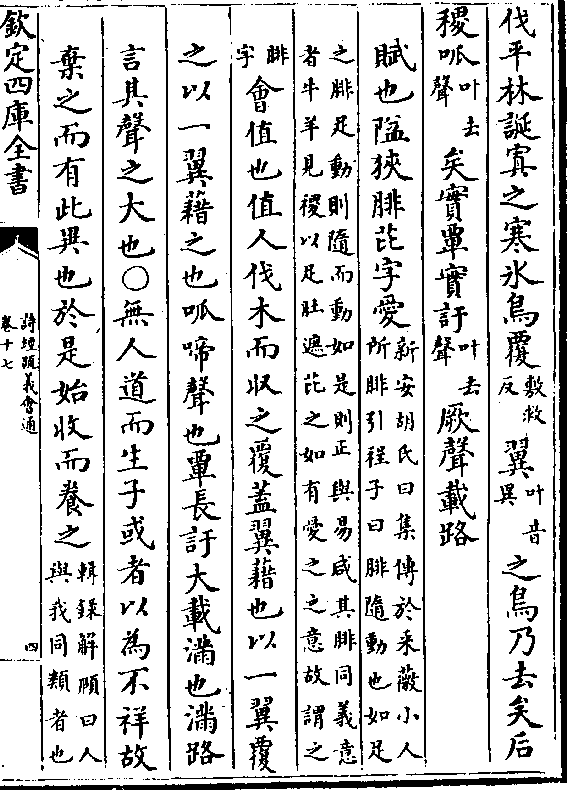 伐平林誕寘之寒氷鳥覆敷救反翼叶音異之鳥乃去矣后
稷呱叶去聲矣實覃實訏叶去聲厥聲載路
賦也隘狹腓芘字愛新安胡氏曰集傳於采薇小人所腓引程子曰腓隨動也如足
之腓足動則隨而動如是則正與易咸其腓同義意者牛羊見稷以足肚遮芘之如有愛之之意故謂之
腓字會值也值人伐木而收之覆蓋翼藉也以一翼覆
之以一翼藉之也呱啼聲也覃長訏大載滿也滿路
言其聲之大也○無人道而生子或者以為不祥故
棄之而有此異也於是始收而養之輯録解頤曰人與我同類者也
欽定四庫全書
詩經疏義會通
卷十七
四